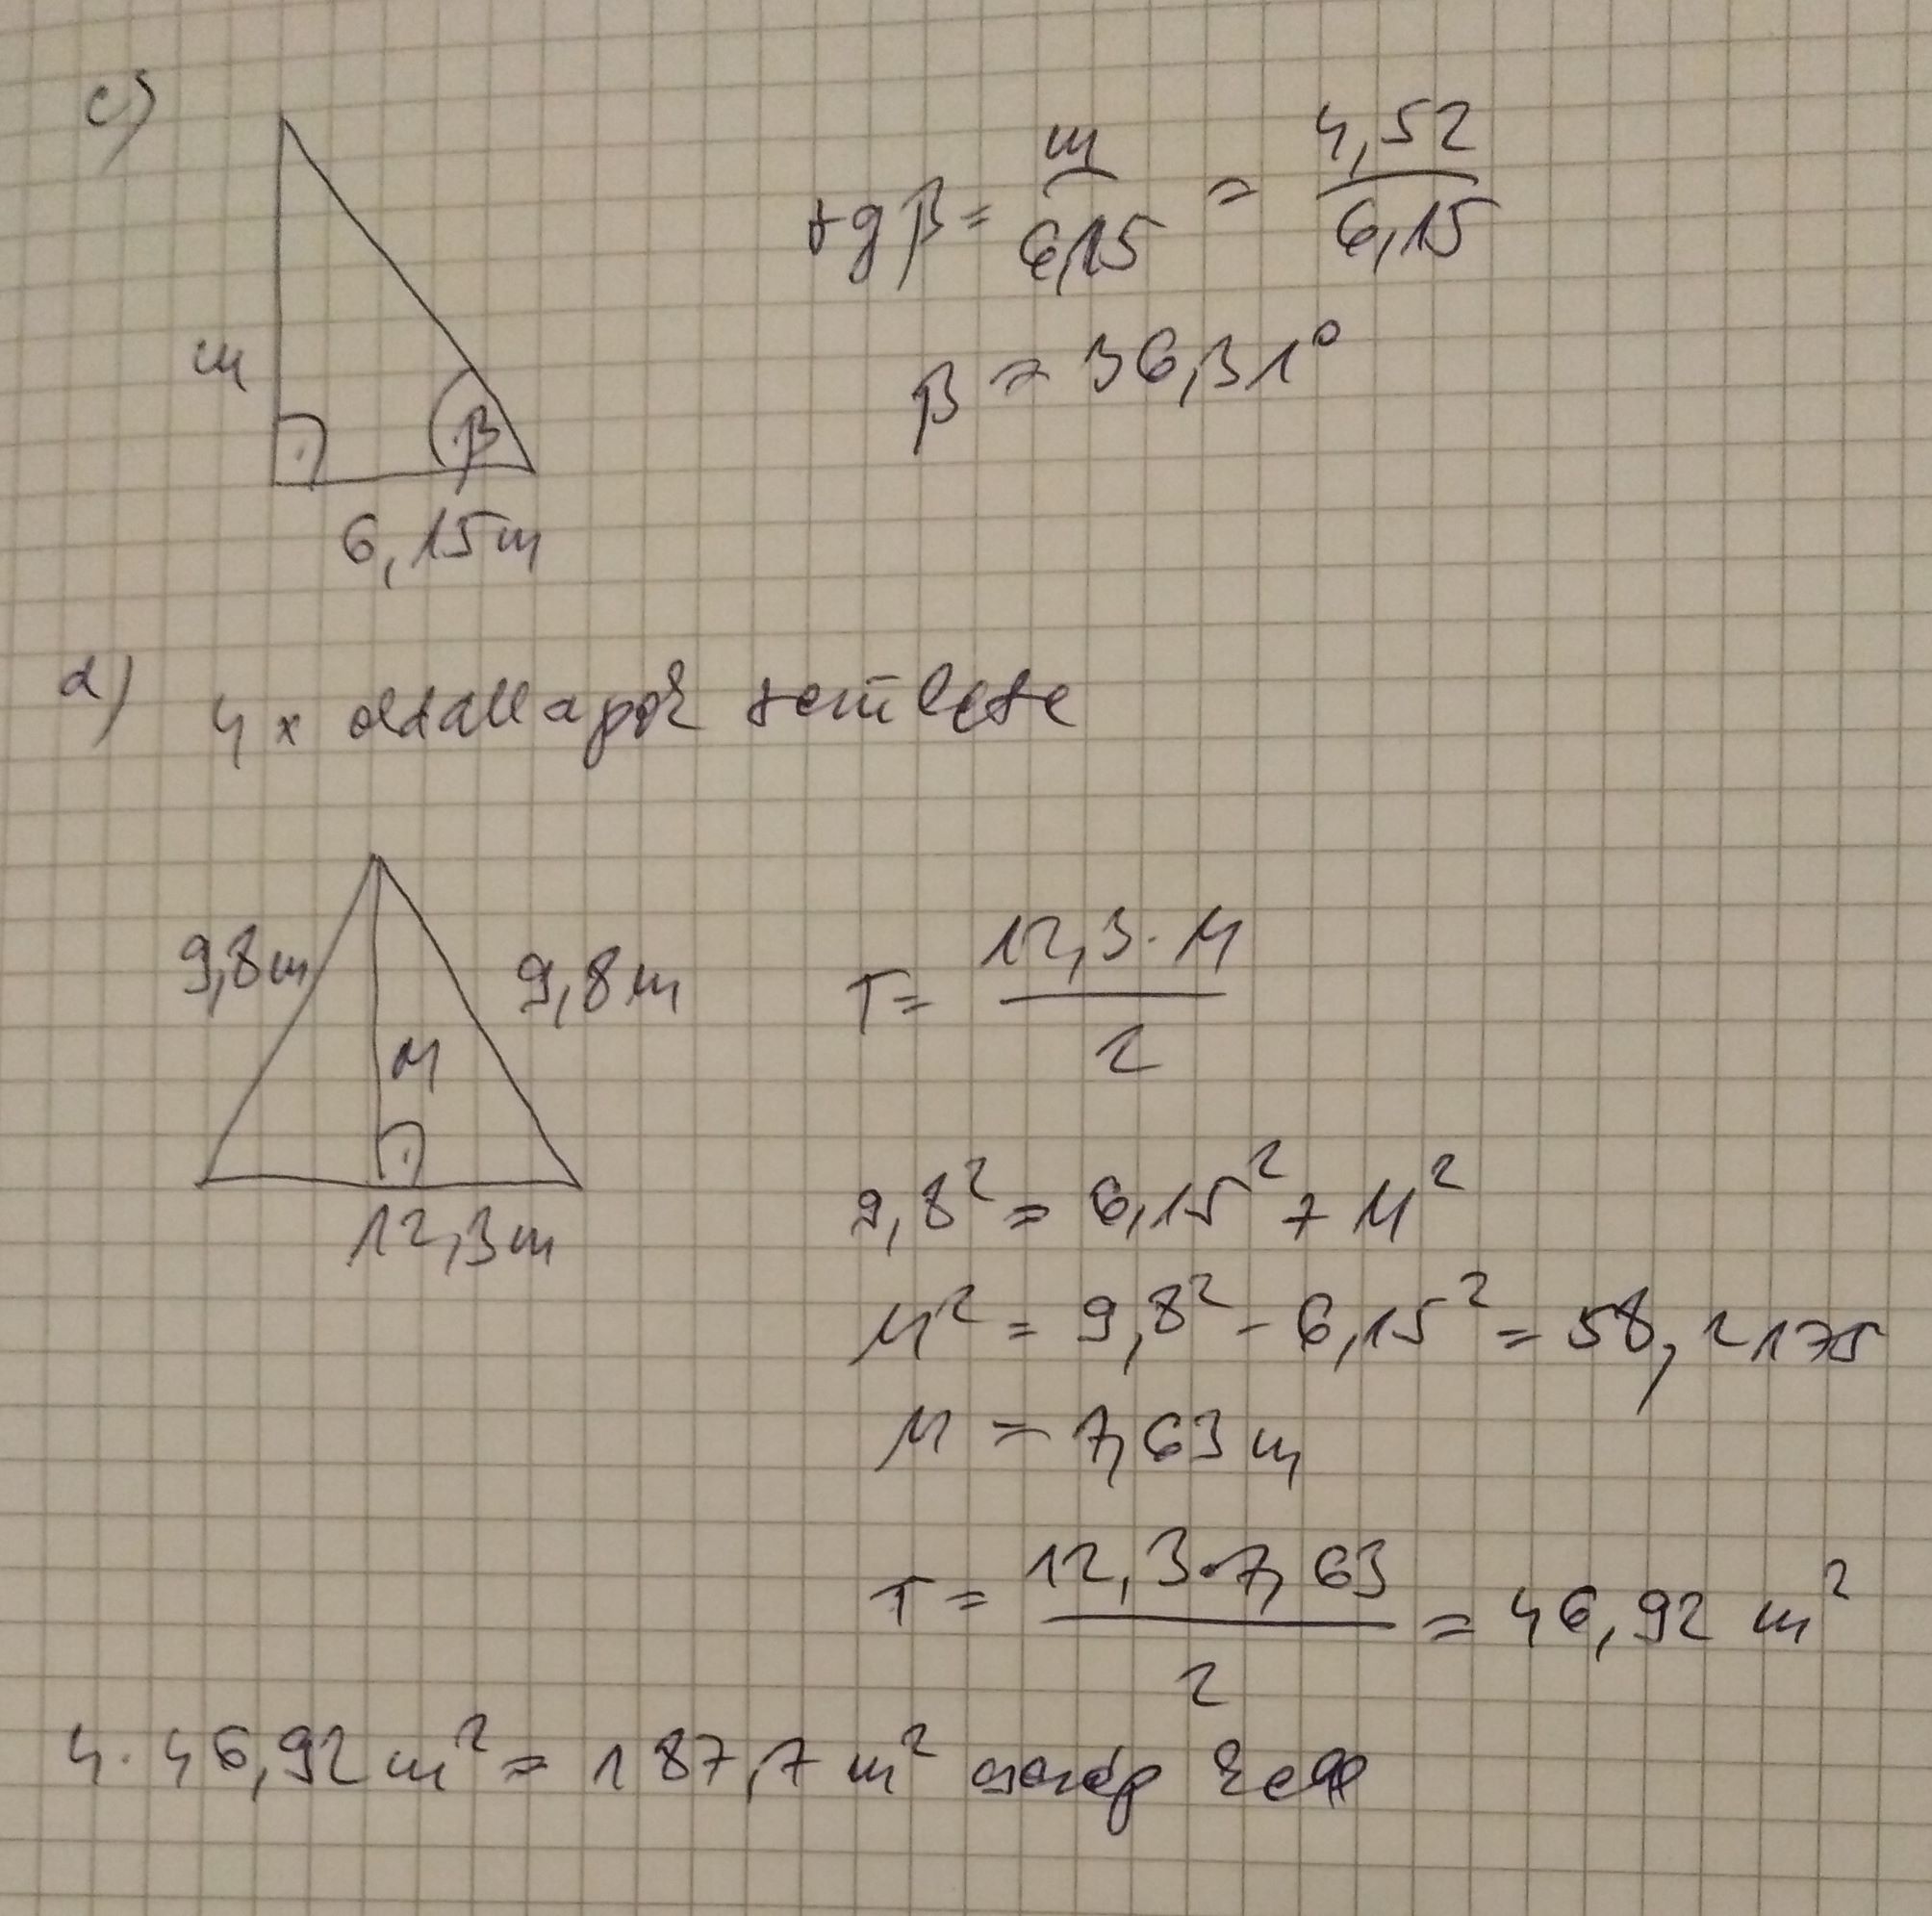 c)
tgβ = m/6,15 = 4,52/6,15
β = 36,31°
m
β
6,15m
d) 4 x oldallapok területe
9,8m
9,8m
M
12,3m
T = 12,3·M/2
9,8² = 6,15² + M²
M² = 9,8² - 6,15² = 58,2175
M = 7,63 m
T = 12,3·7,63/2 = 46,92 m²
4·46,92 m² = 187,7 m² cserép kell